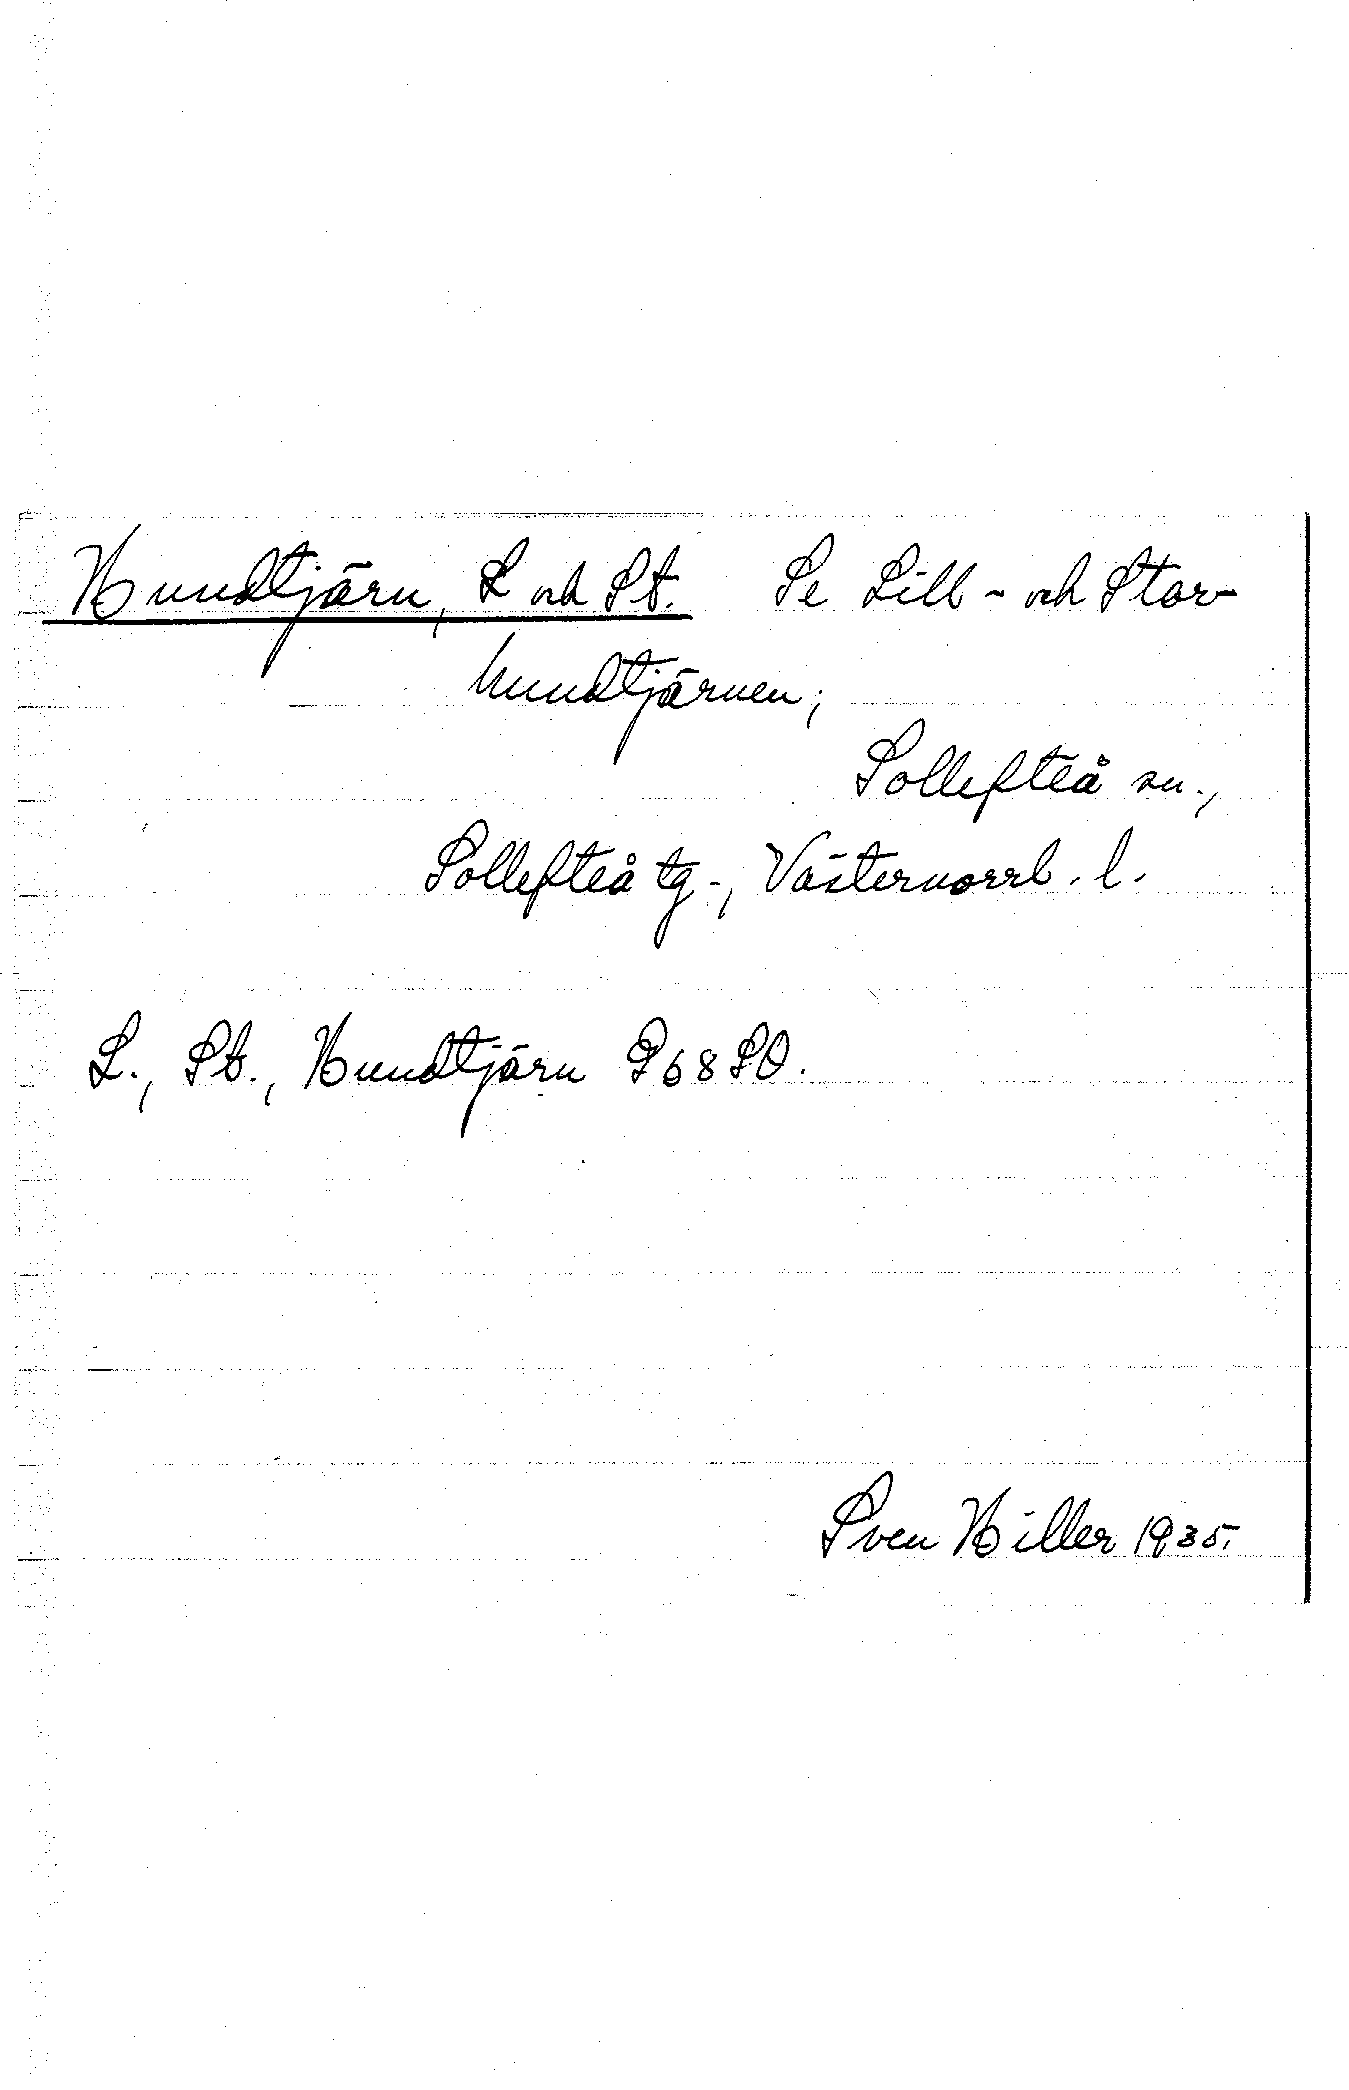 Hundtjärn, L och St. Se Lill- och Stor-
hundtjärnen;
Sollefteå sn.,
Sollefteå tg., Västernorrl. l.
L., St., Hundtjärn G68SO.
Sven Hiller 1935.